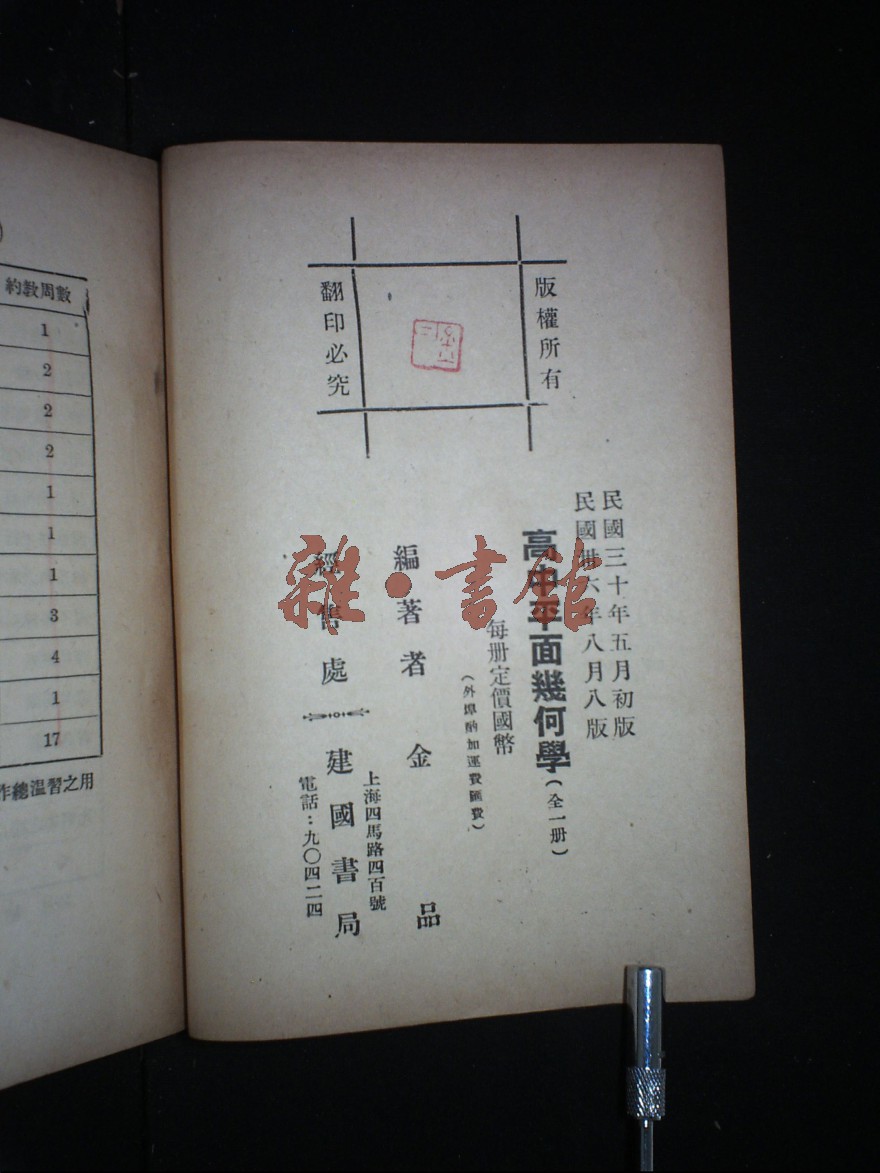 版權所有
翻印必究
民國三十年五月初版
民國卅六年八月八版
高中平面幾何學(全一册)
每册定價國幣
(外埠酌加運費匯費)
編著者 金品
經售處 建國書局
上海四馬路四百號
電話:九〇四二四
雜·書館
約教周數
1
2
2
2
1
1
1
3
4
1
17
作總溫習之用